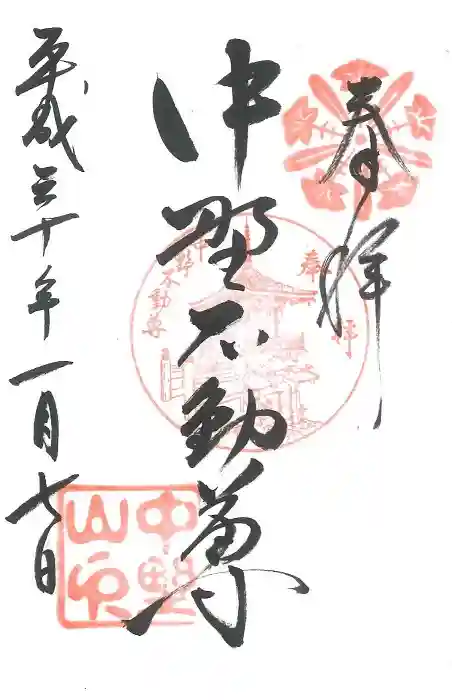 奉拝
中野不動尊
平成三十年一月七日
奉拝
中野不動尊
中野
山